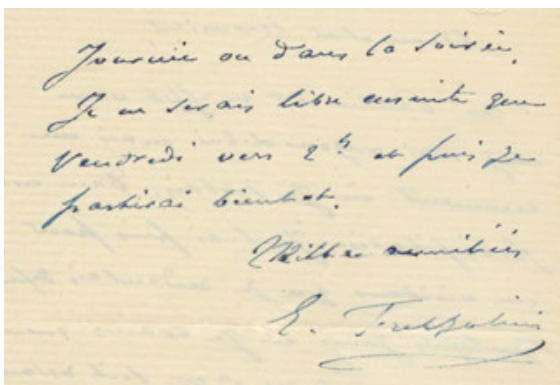 journée ou dans la soirée.
Je ne serais libre ensuite que
Vendredi vers 2h et puis je
partirai bientot.
Mille amitiés
E. Frezzolini